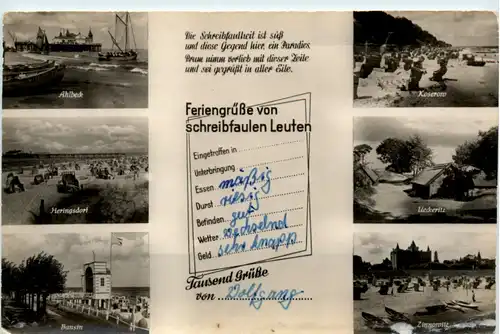 Die Schreibfaulheit ist süß
und diese Gegend hier, ein Paradies
Drum nimm vorlieb mit dieser Zeile
und sei gegrüßt in aller Eile.
Feriengrüße von
schreibfaulen Leuten
Eingetroffen in
Unterbringung
Essen mäßig
Durst riesig
Befinden gut
Wetter wechselnd
Geld sehr knapp
Tausend Grüße
von Wolfgang
Ahlbeck
Heringsdorf
Bansin
Koserow
Ueckeritz
Zinnowitz